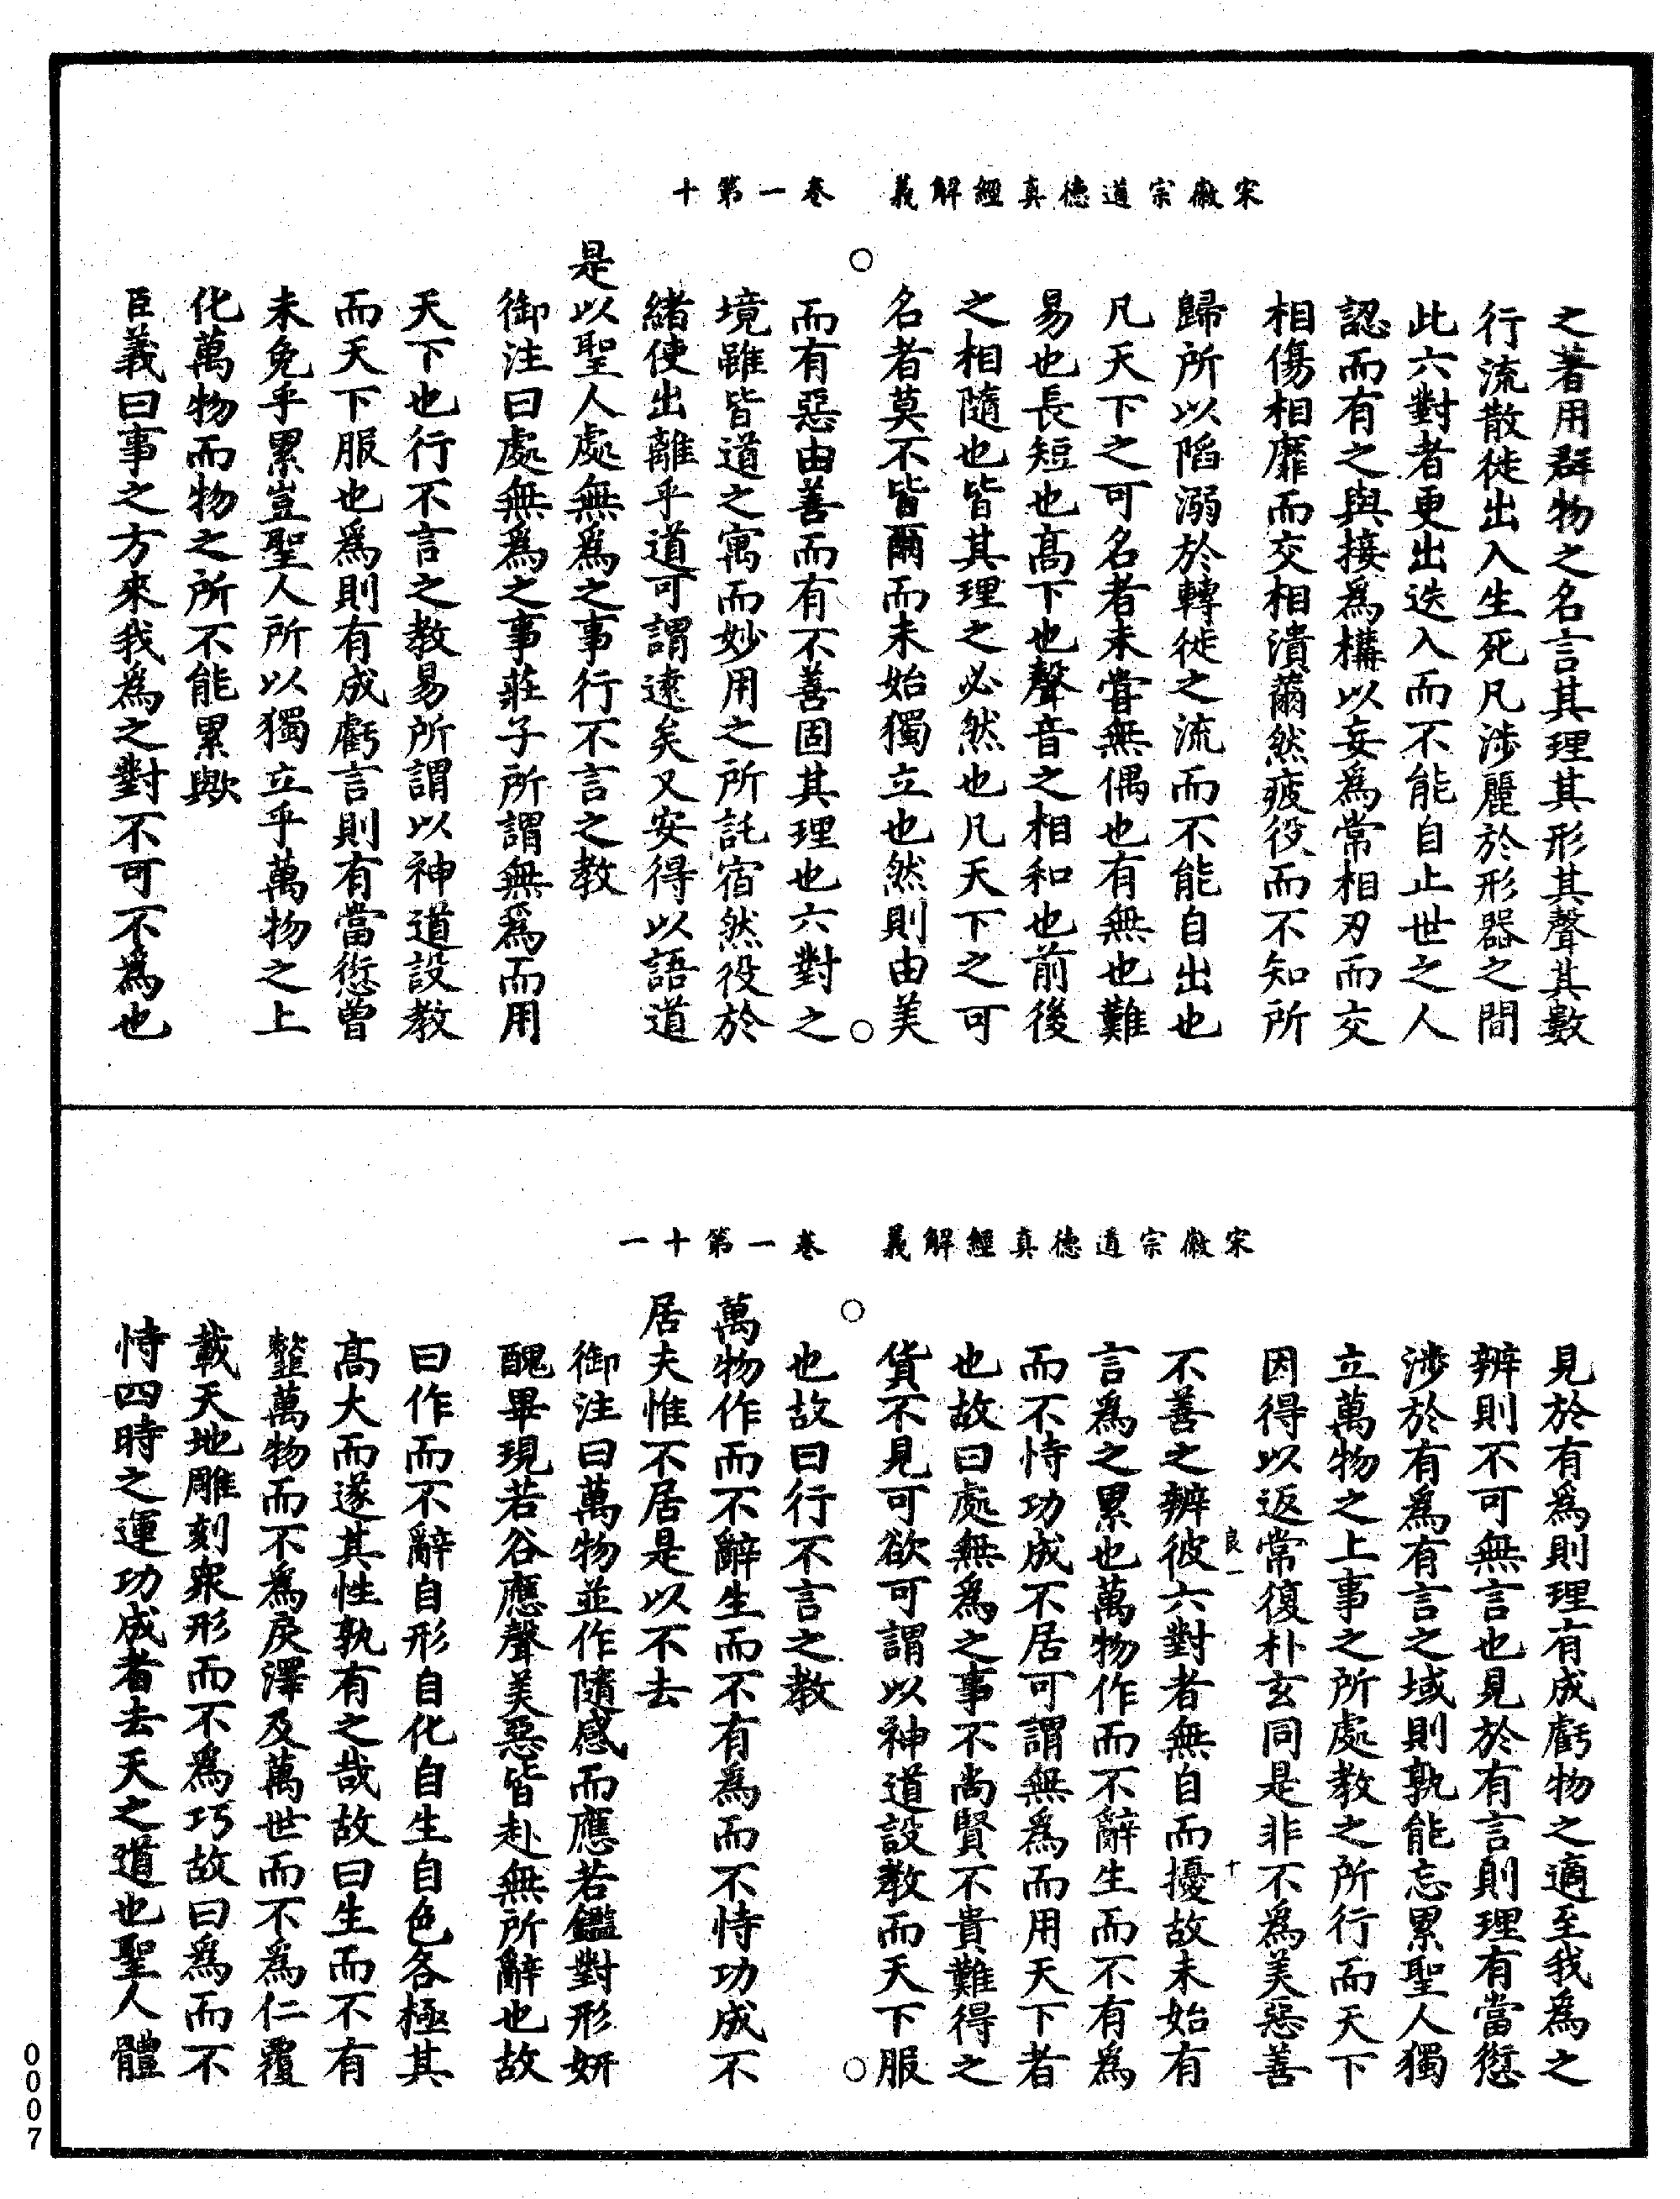 宋徽宗道德真經解義　卷一第十
之著用群物之名言其理其形其聲其數
行流散徙出入生死凡涉麗於形器之間
此六對者更出迭入而不能自止世之人
認而有之與接爲構以妄爲常相刃而交
相傷相靡而交相潰薾然疲役而不知所
歸所以陷溺於轉徙之流而不能自出也
凡天下之可名者未嘗無偶也有無也難
易也長短也高下也聲音之相和也前後
之相隨也皆其理之必然也凡天下之可
名者莫不皆爾而未始獨立也然則由美
而有惡由善而有不善固其理也六對之
境雖皆道之寓而妙用之所託宿然役於
緒使出離乎道可謂遠矣又安得以語道
是以聖人處無爲之事行不言之教
御注曰處無爲之事莊子所謂無爲而用
天下也行不言之教易所謂以神道設教
而天下服也爲則有成虧言則有當愆曾
未免乎累豈聖人所以獨立乎萬物之上
化萬物而物之所不能累歟
臣義曰事之方來我爲之對不可不爲也
宋徽宗道德真經解義　卷一第十一
見於有爲則理有成虧物之適至我爲之
辨則不可無言也見於有言則理有當愆
涉於有爲有言之域則孰能忘累聖人獨
立萬物之上事之所處教之所行而天下
因得以返常復朴玄同是非不爲美惡善
良一　十
不善之辨彼六對者無自而擾故未始有
言爲之累也萬物作而不辭生而不有爲
而不恃功成不居可謂無爲而用天下者
也故曰處無爲之事不尚賢不貴難得之
貨不見可欲可謂以神道設教而天下服
也故曰行不言之教
萬物作而不辭生而不有爲而不恃功成不
居夫惟不居是以不去
御注曰萬物並作隨感而應若鑑對形妍
醜畢現若谷應聲美惡皆赴無所辭也故
曰作而不辭自形自化自生自色各極其
高大而遂其性孰有之哉故曰生而不有
䪠萬物而不爲戾澤及萬世而不爲仁覆
載天地雕刻衆形而不爲巧故曰爲而不
恃四時之運功成者去天之道也聖人體
0007